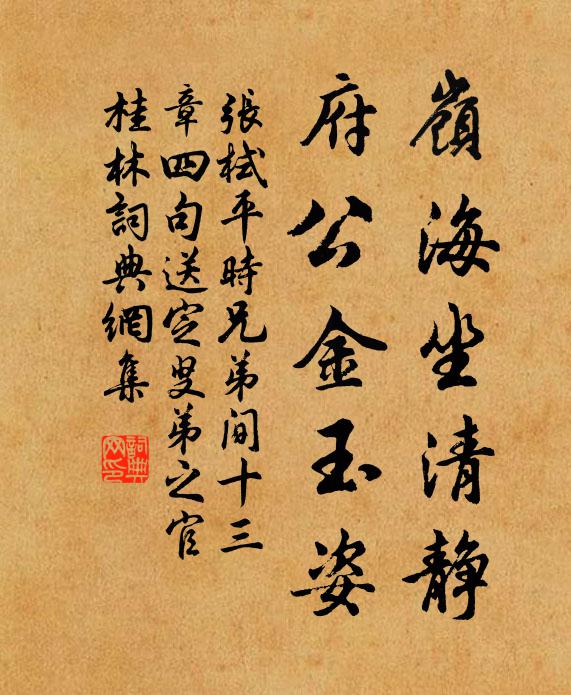 嶺海坐清靜
府公金玉姿
張栻平時兄弟間十三
章四句送定叟弟之官
桂林詞典網集
詞典
网印